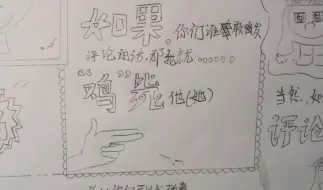 如果 你们谁要敢幽发
评论的话,那我就......
“鸣”毙他(她)
当然,如
评论